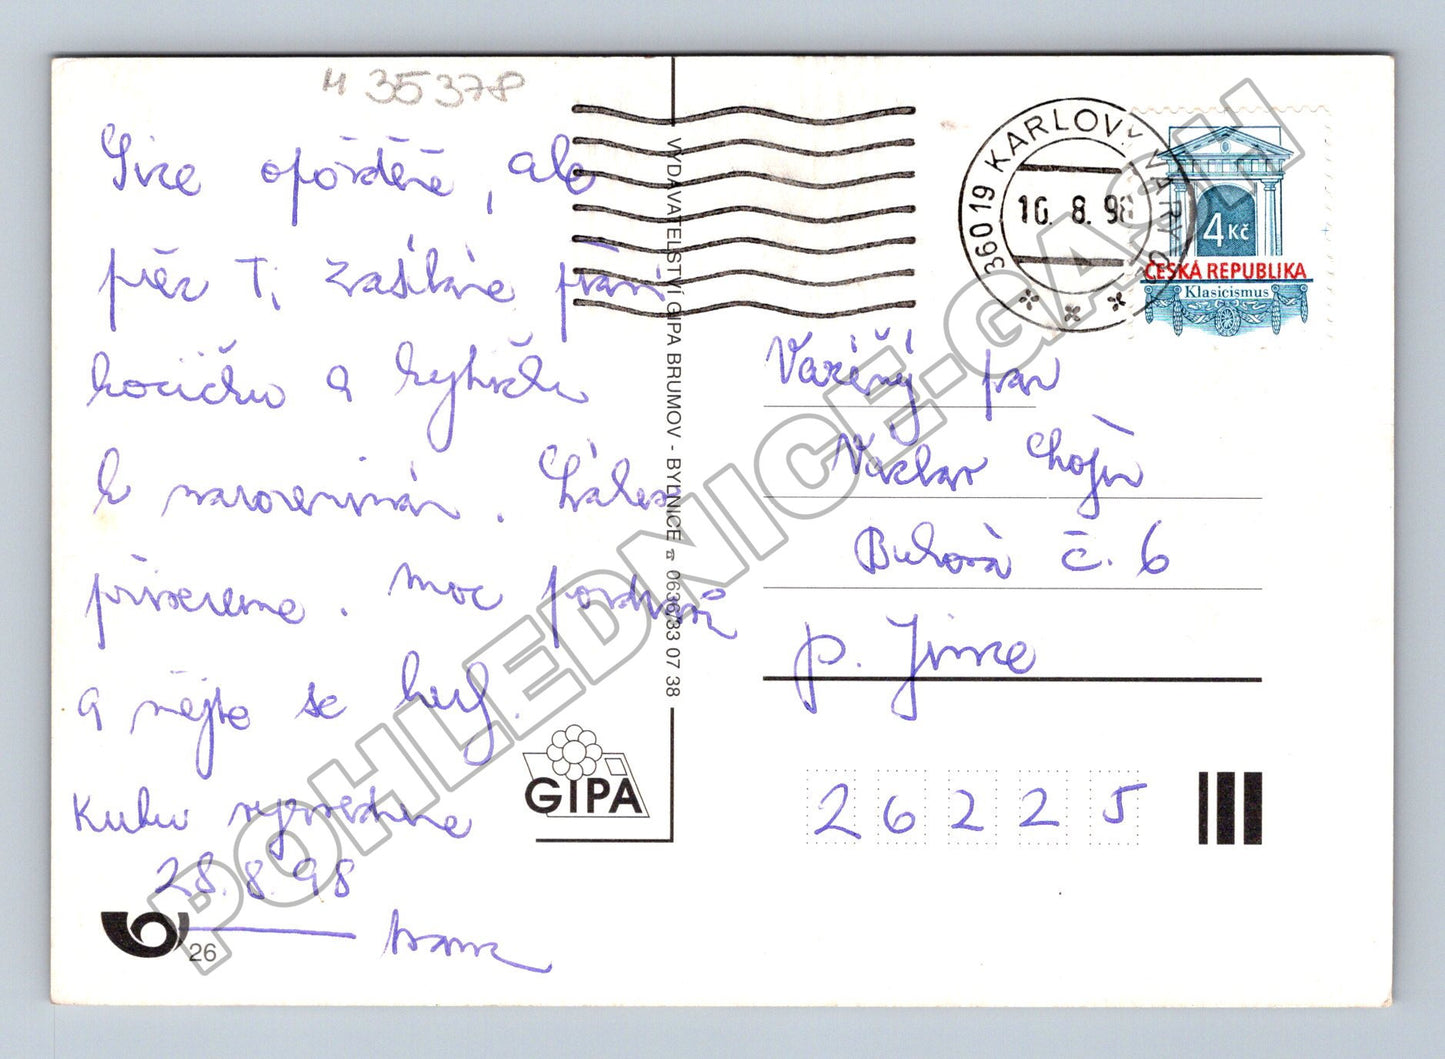 M 35378
Sice opožděně, ale
přec Ti zasíláme přání
kocičku a kytičku
k narozeninám.
přivezeme. Moc pozdravů
a mějte se
Kuku vyzvedneme
28.8.98
26
VYDAVATELSTVÍ GIPA BRUMOV - BYLNICE ☎ 0636/33 07 38
GIPA
36019 KARLOVY VARY
10. 8. 98
4 Kč
ČESKÁ REPUBLIKA
Klasicismus
Vážený pan
Václav
Buková č. 6
p. Jince
26225
POHLEDNICE-GASH